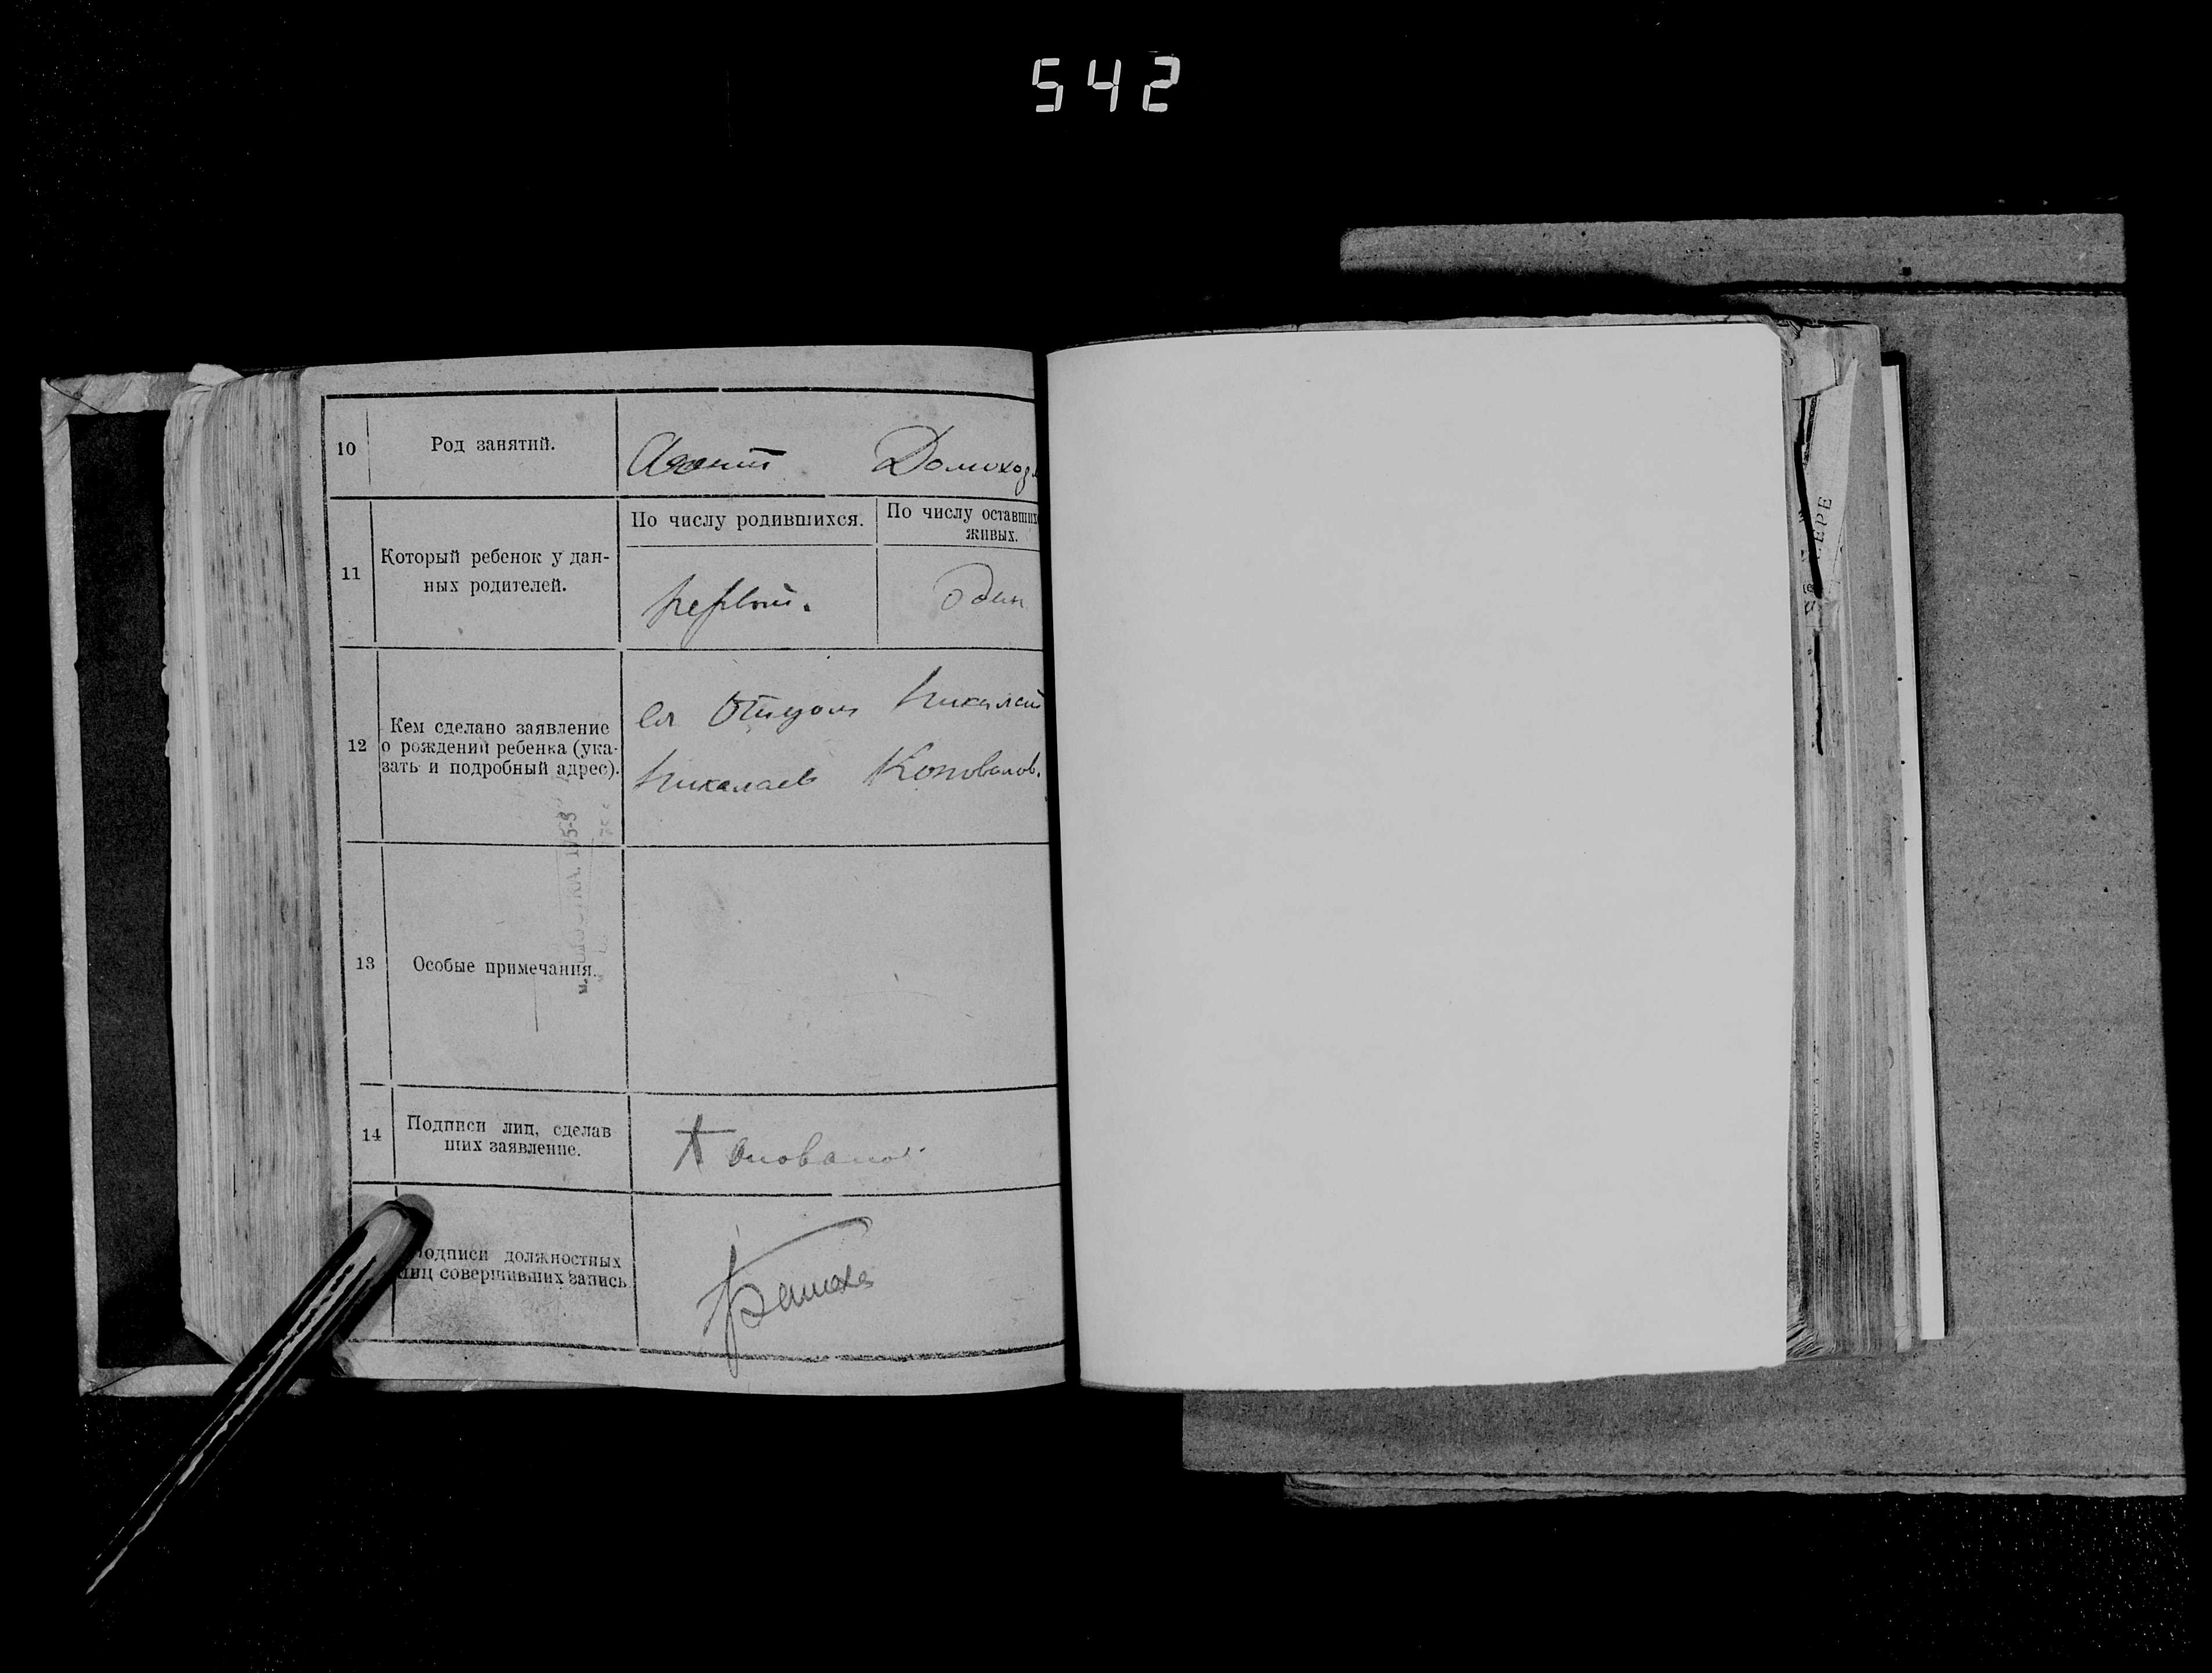 542
10 Род занятий. Агент Домохоз
11 Который ребенок у дан-
ных родителей.
По числу родившихся. По числу оставших
живых.
первый. один
12 Кем сделано заявление
о рождении ребенка (ука-
зать и подробный адрес).
Отцом Николай
Николаев Коновалов.
13 Особые примечания.
14 Подписи лиц, сделав
ших заявление.
Коновалов
Подписи должностных
лиц совершивших запись